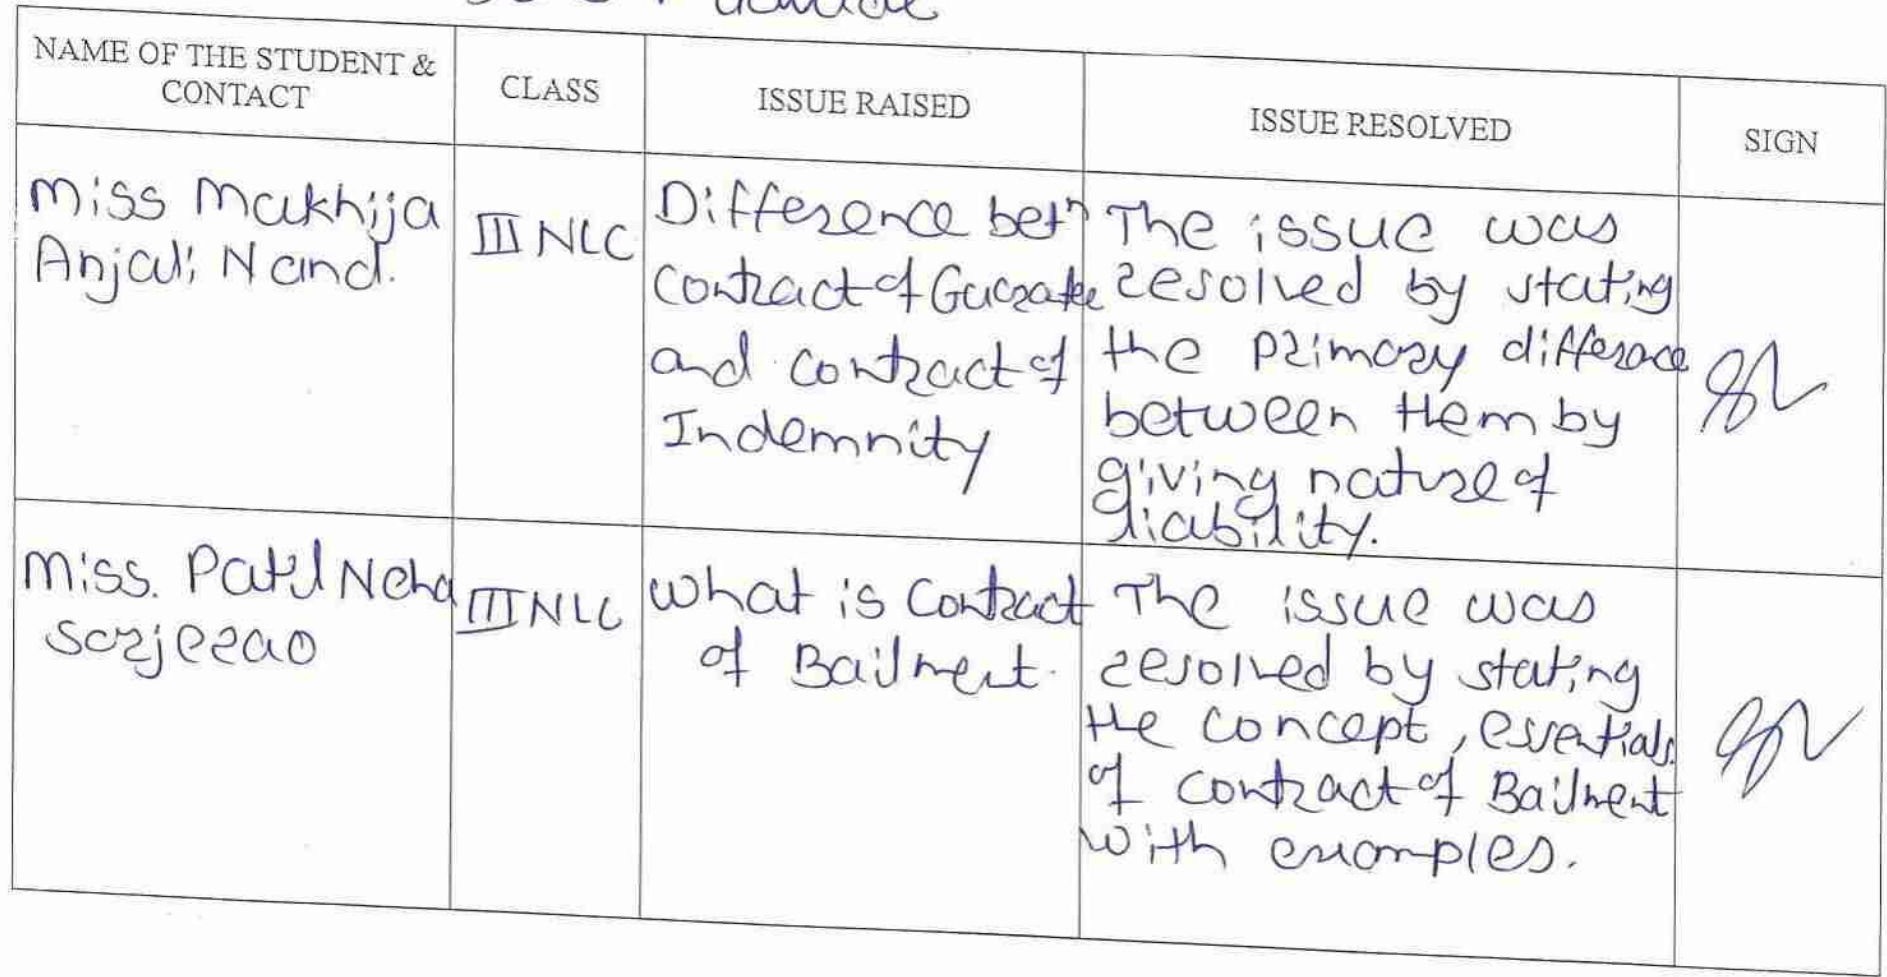 NAME OF THE STUDENT &
CONTACT
CLASS
ISSUE RAISED
ISSUE RESOLVED
SIGN
Miss Makhija
Anjali Nand.
III NLC
Difference betn
Contract of
and contract of
Indemnity
The issue was
resolved by stating
the primary difference
between them by
giving nature of
liability.
Miss. Patil Neha
Sarjerao
III NLC
What is Contract
of Bailment.
The issue was
resolved by stating
the concept, essentials
of contract of Bailment
with examples.